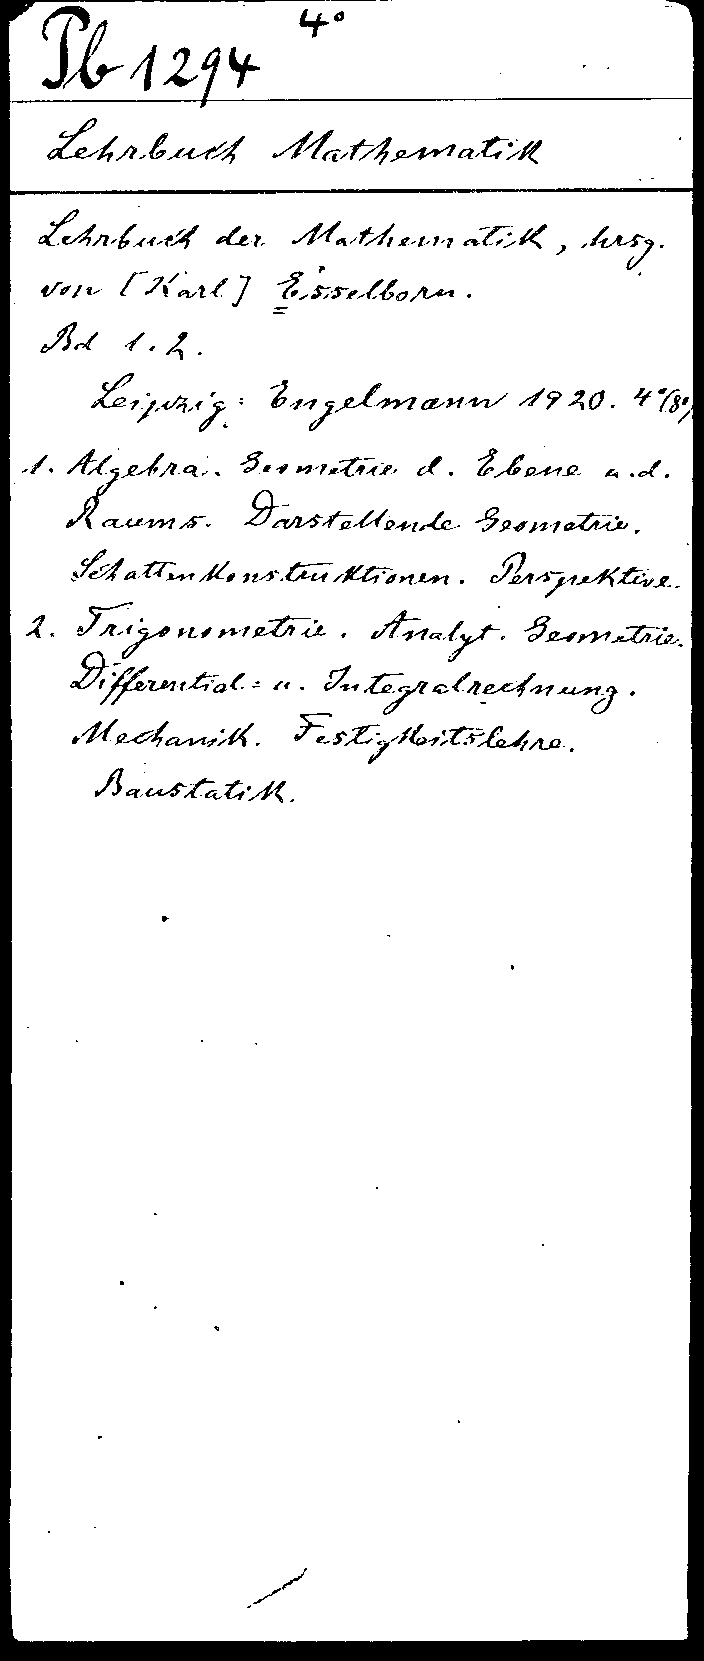 Pb 1294 4°
Lehrbuch Mathematik
Lehrbuch der Mathematik, hrsg.
von [Karl] Esselborn.
Bd 1.2.
Leipzig: Engelmann 1920. 4°(8°)
1. Algebra. Geometrie d. Ebene u. d.
Raums. Darstellende Geometrie.
Schattenkonstruktionen. Perspektive.
2. Trigonometrie. Analyt. Geometrie.
Differential= u. Integralrechnung.
Mechanik. Festigkeitslehre.
Baustatik.